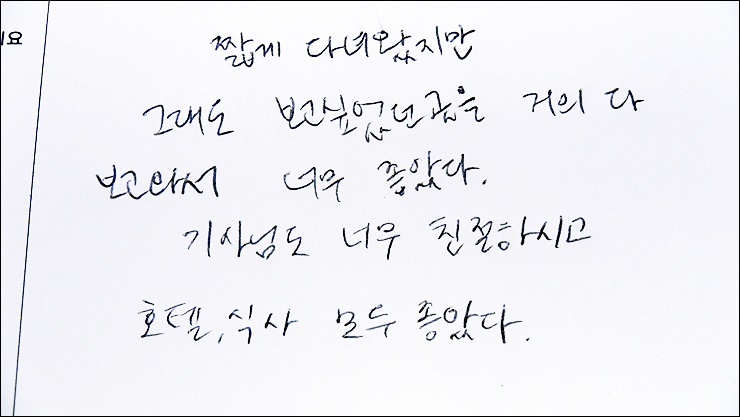 기요
짧게 다녀왔지만
그래도 보고싶었던곳을 거의 다
보고와서 너무 좋았다.
기사님도 너무 친절하시고
호텔,식사 모두 좋았다.